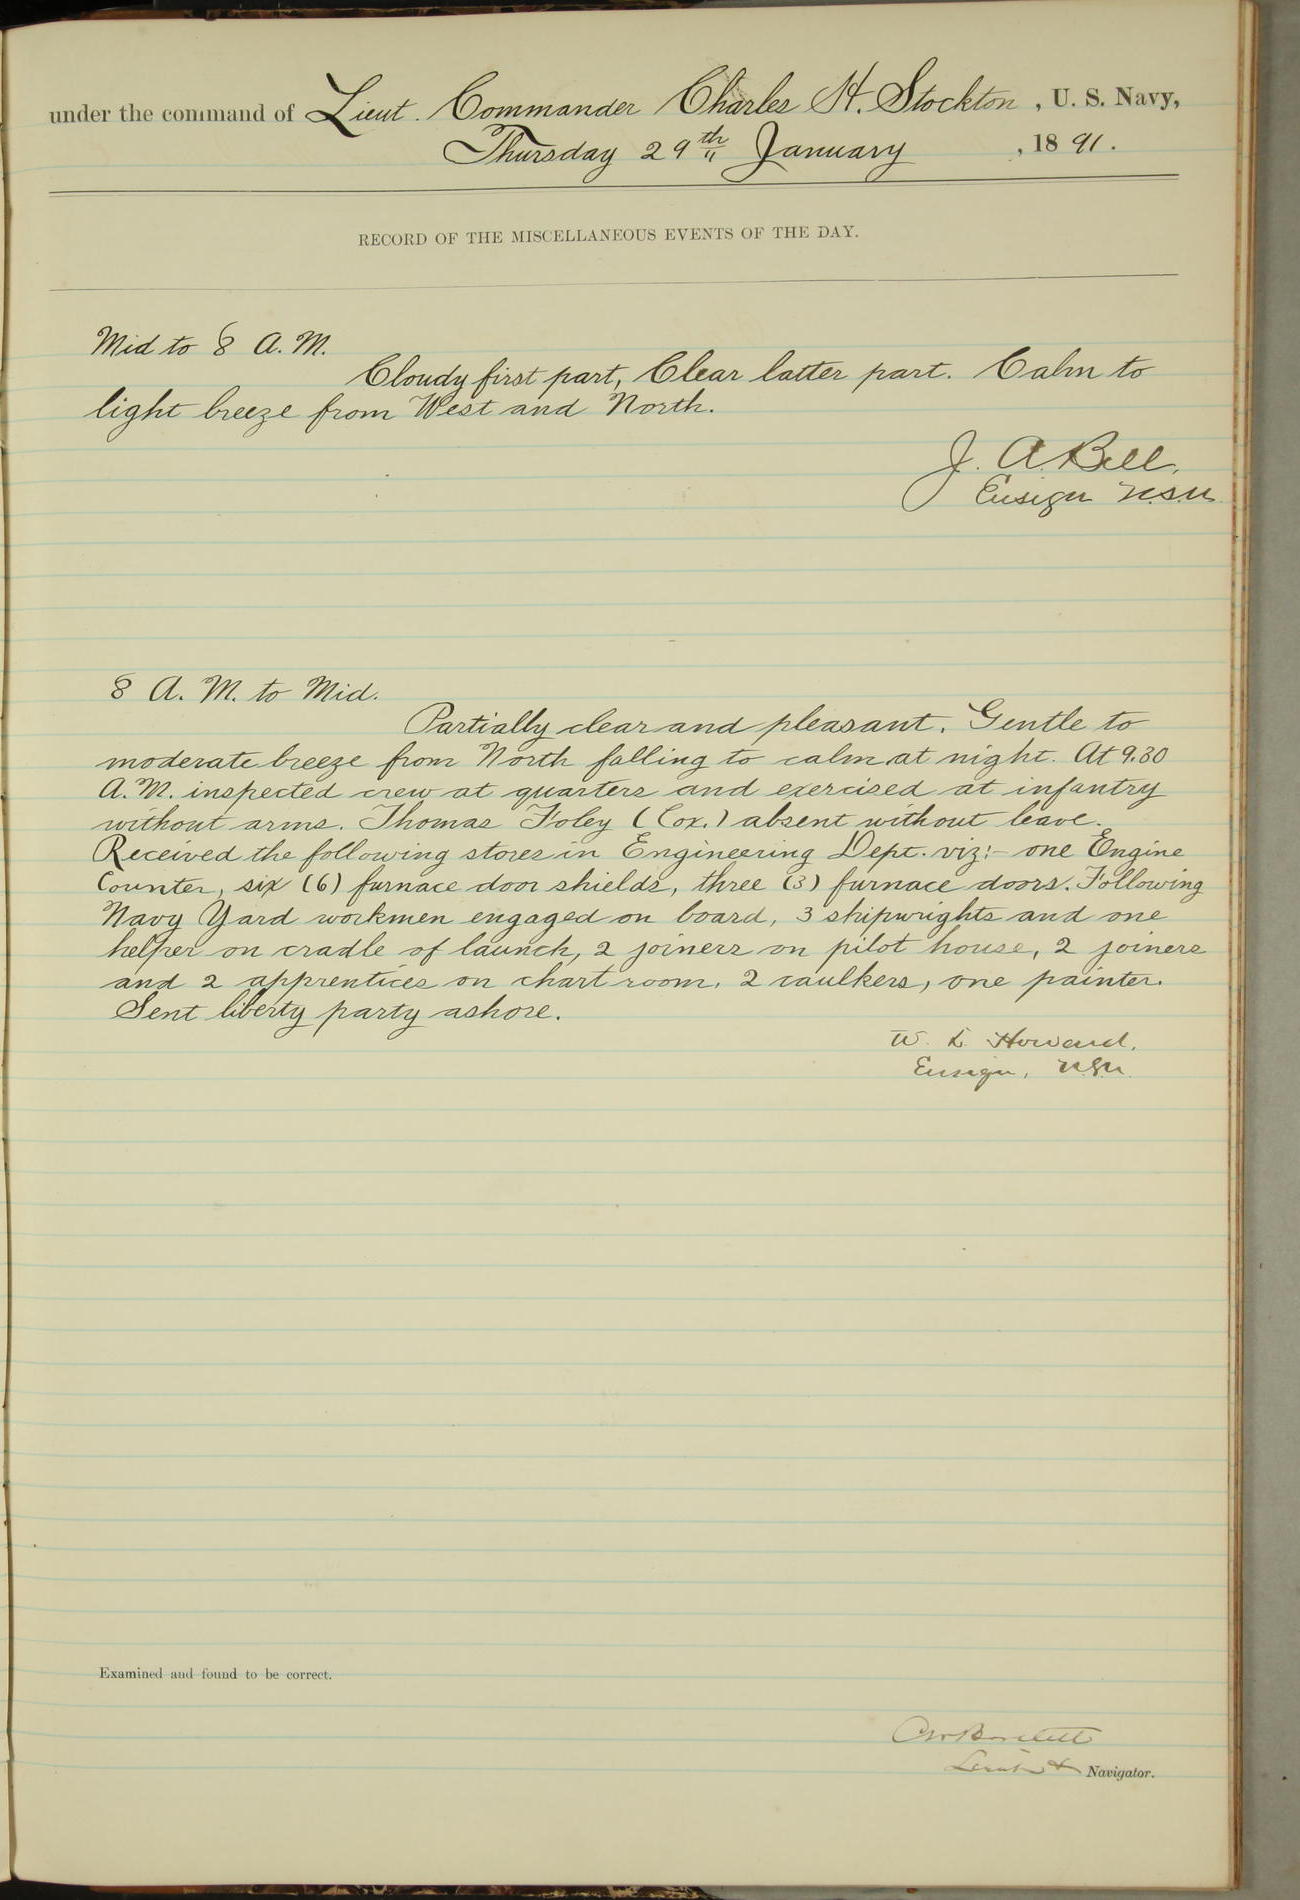 under the command of Lieut. Commander Charles H. Stockton, U. S. Navy,
Thursday 29th January, 1891.
RECORD OF THE MISCELLANEOUS EVENTS OF THE DAY.
Mid to 8 A. M.
Cloudy first part, Clear latter part. Calm to
light breeze from West and North.
J. A. Bell,
Ensign U.S.N.
8 A. M. to Mid.
Partially clear and pleasant. Gentle to
moderate breeze from North falling to calm at night. At 9.30
A. M. inspected crew at quarters and exercised at infantry
without arms. Thomas Foley (Cox.) absent without leave.
Received the following stores in Engineering Dept. viz:- one Engine
Counter, six (6) furnace door shields, three (3) furnace doors. Following
Navy Yard workmen engaged on board, 3 shipwrights and one
helper on cradle of launch, 2 joiners on pilot house, 2 joiners
and 2 apprentices on chart room, 2 caulkers, one painter.
Sent liberty party ashore.
W. L. Howard,
Ensign, U.S.N.
Examined and found to be correct.
Bartlett
Lieut & Navigator.